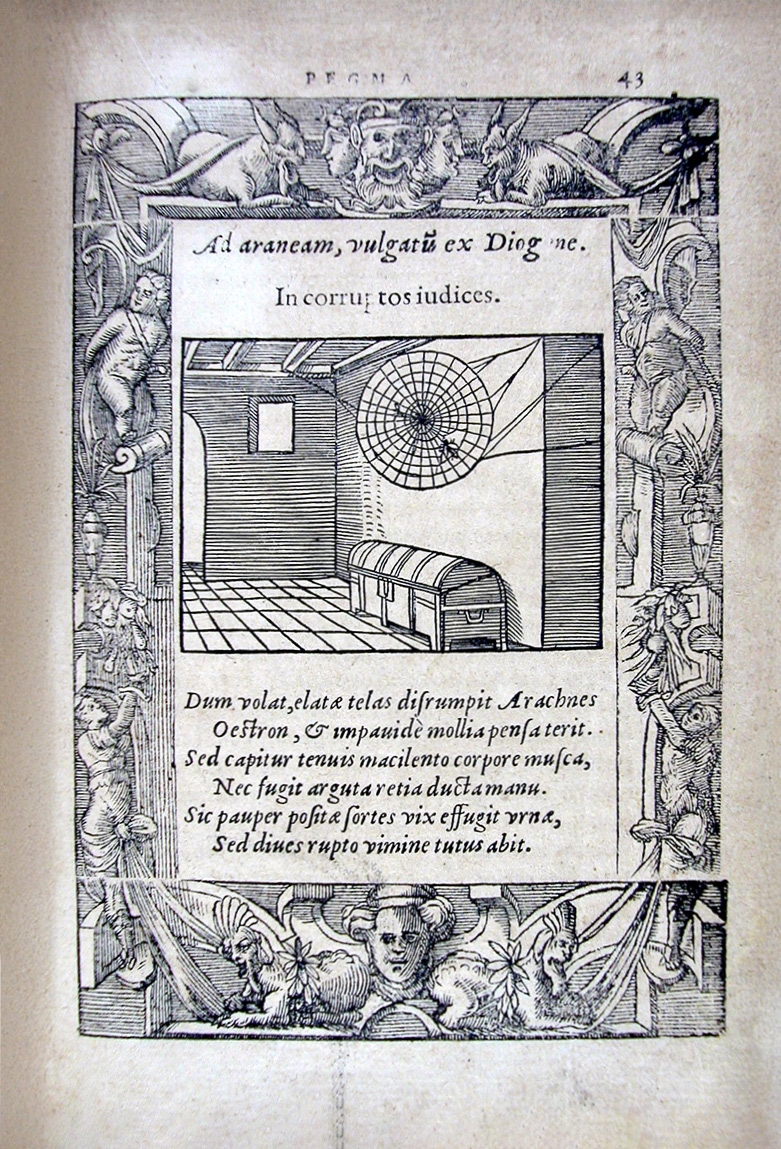 PEGMA 43
Ad araneam, vulgatū ex Diogene.
In corruptos iudices.
Dum volat, elatæ telas disrumpit Arachnes
Oestron, & impauidè mollia pensa terit.
Sed capitur tenuis macilento corpore musca,
Nec fugit arguta retia ducta manu.
Sic pauper positæ sortes vix effugit vrnæ,
Sed diues rupto vimine tutus abit.